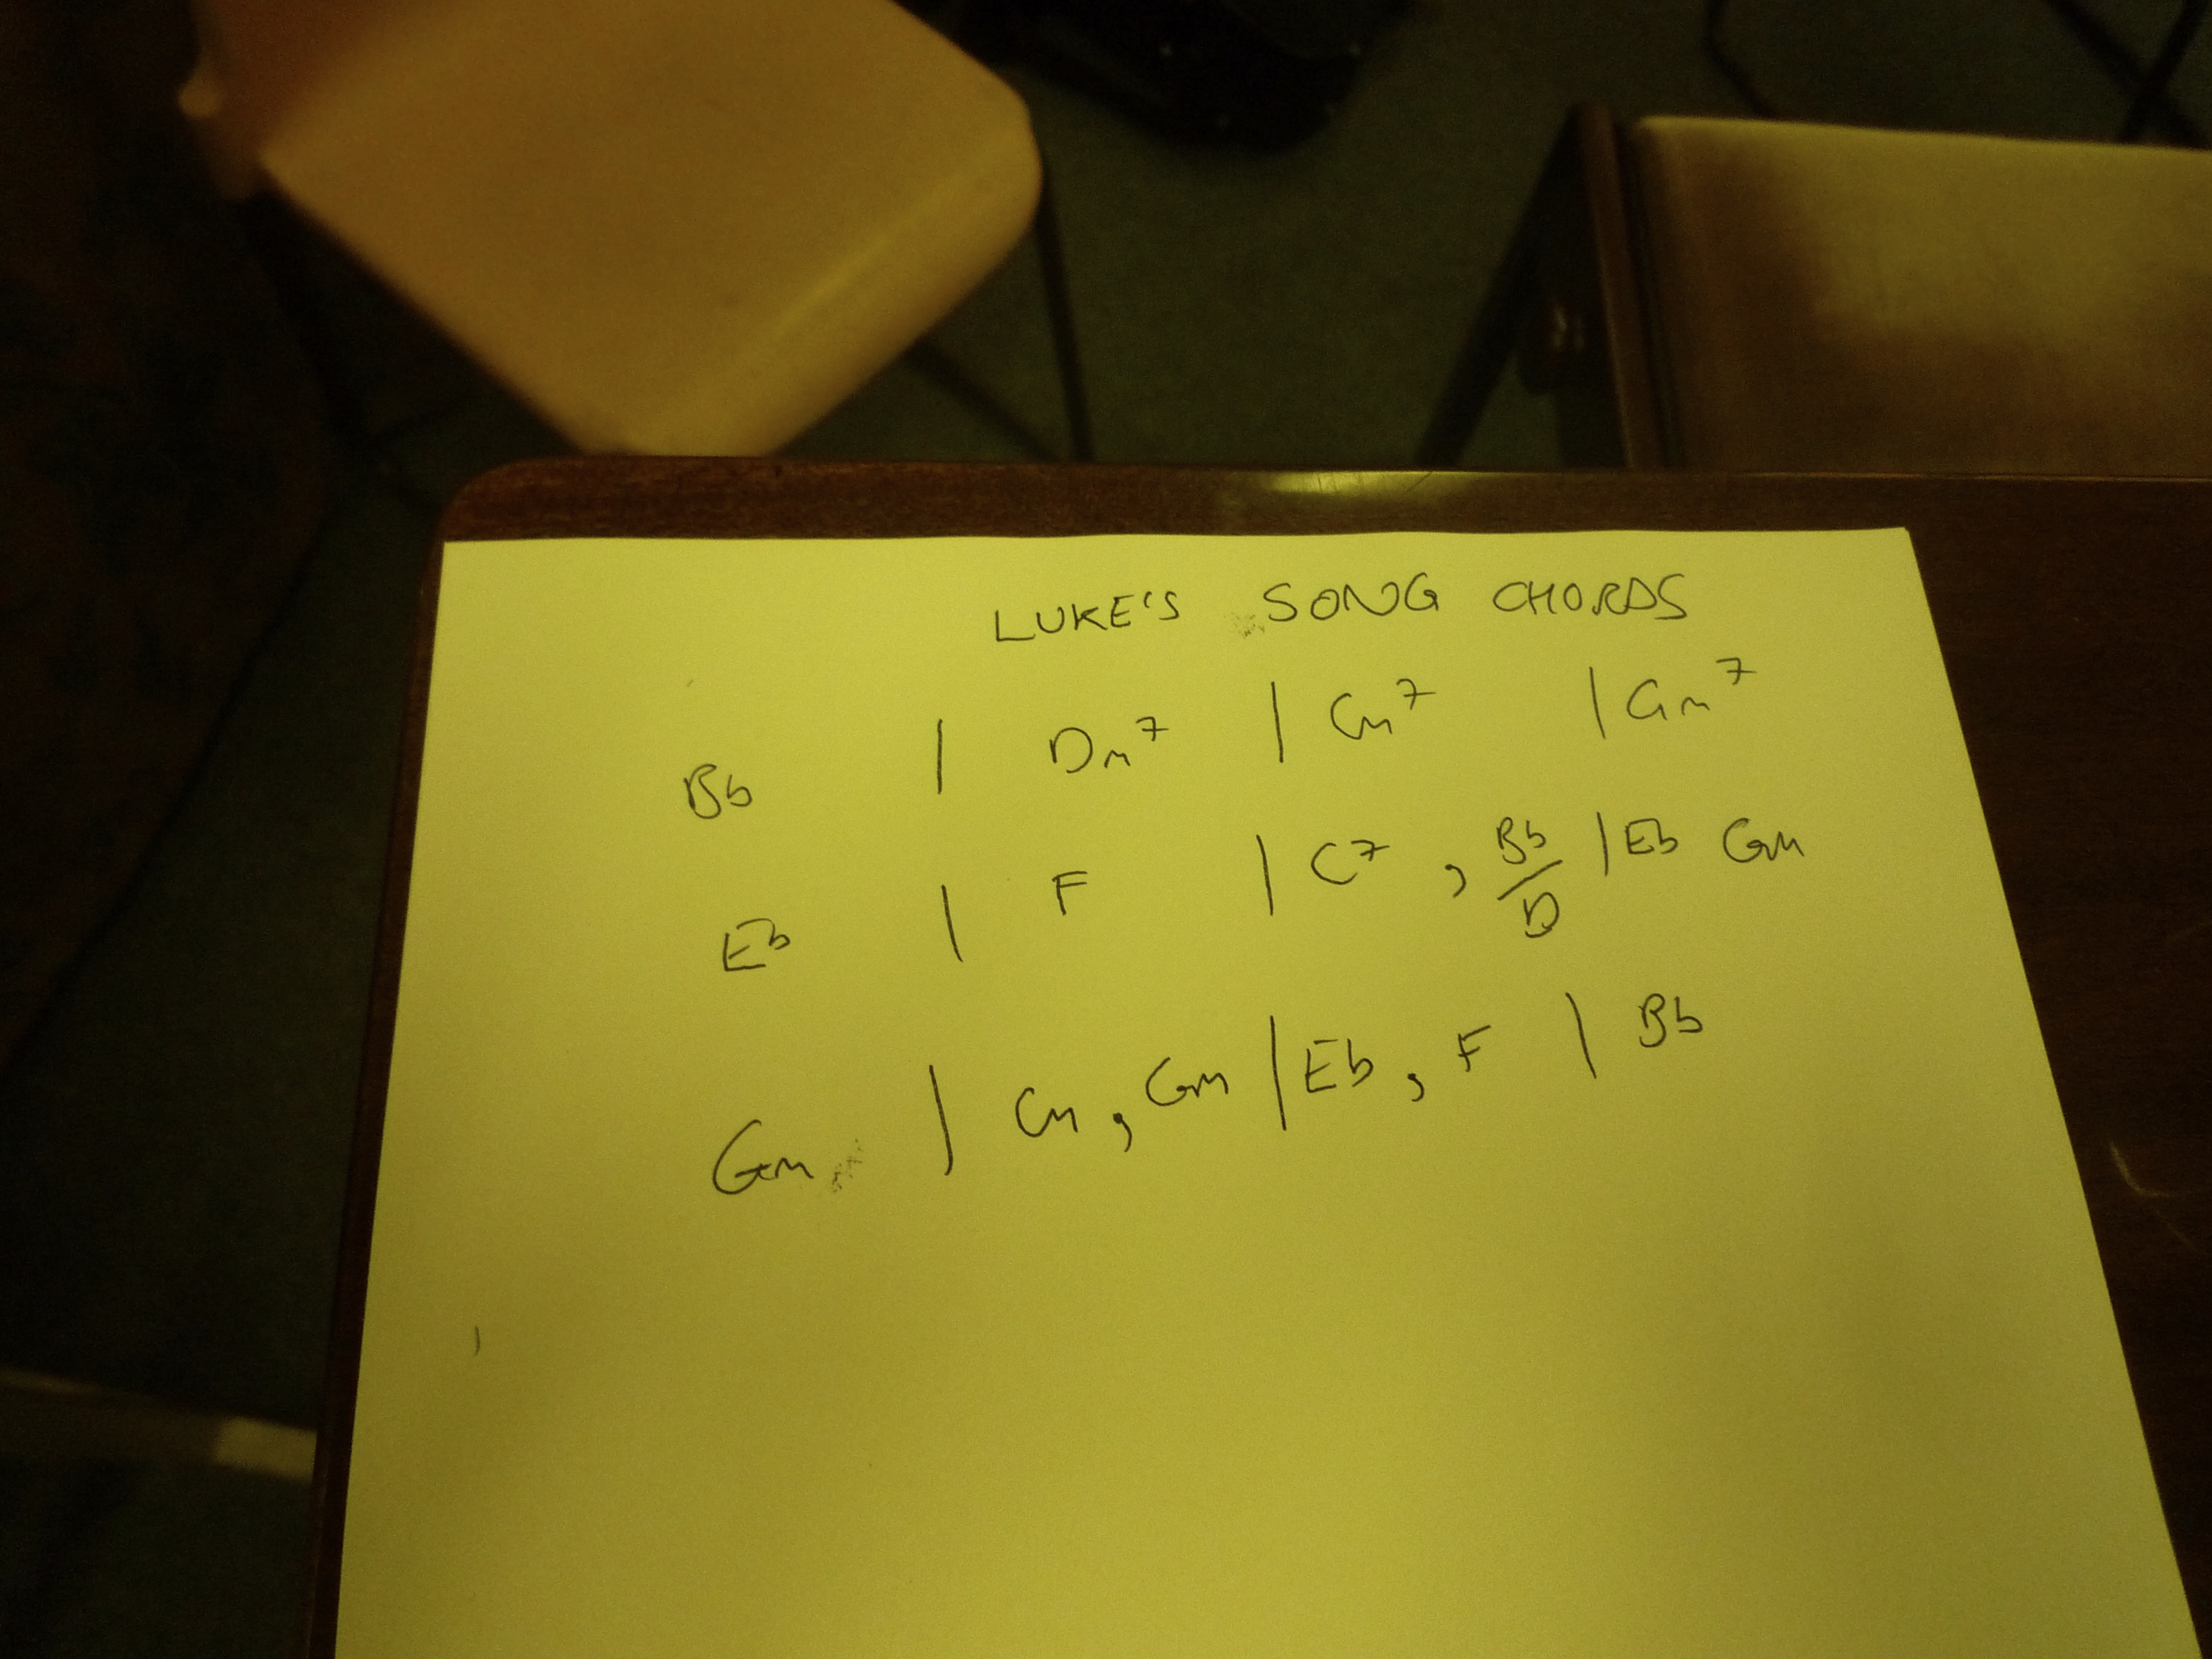 LUKE'S SONG CHORDS
Bb | Dm7 | Cm7 | Gm7
Eb | F | C7 , Bb/D | Eb Gm
Gm | Cm , Gm | Eb , F | Bb